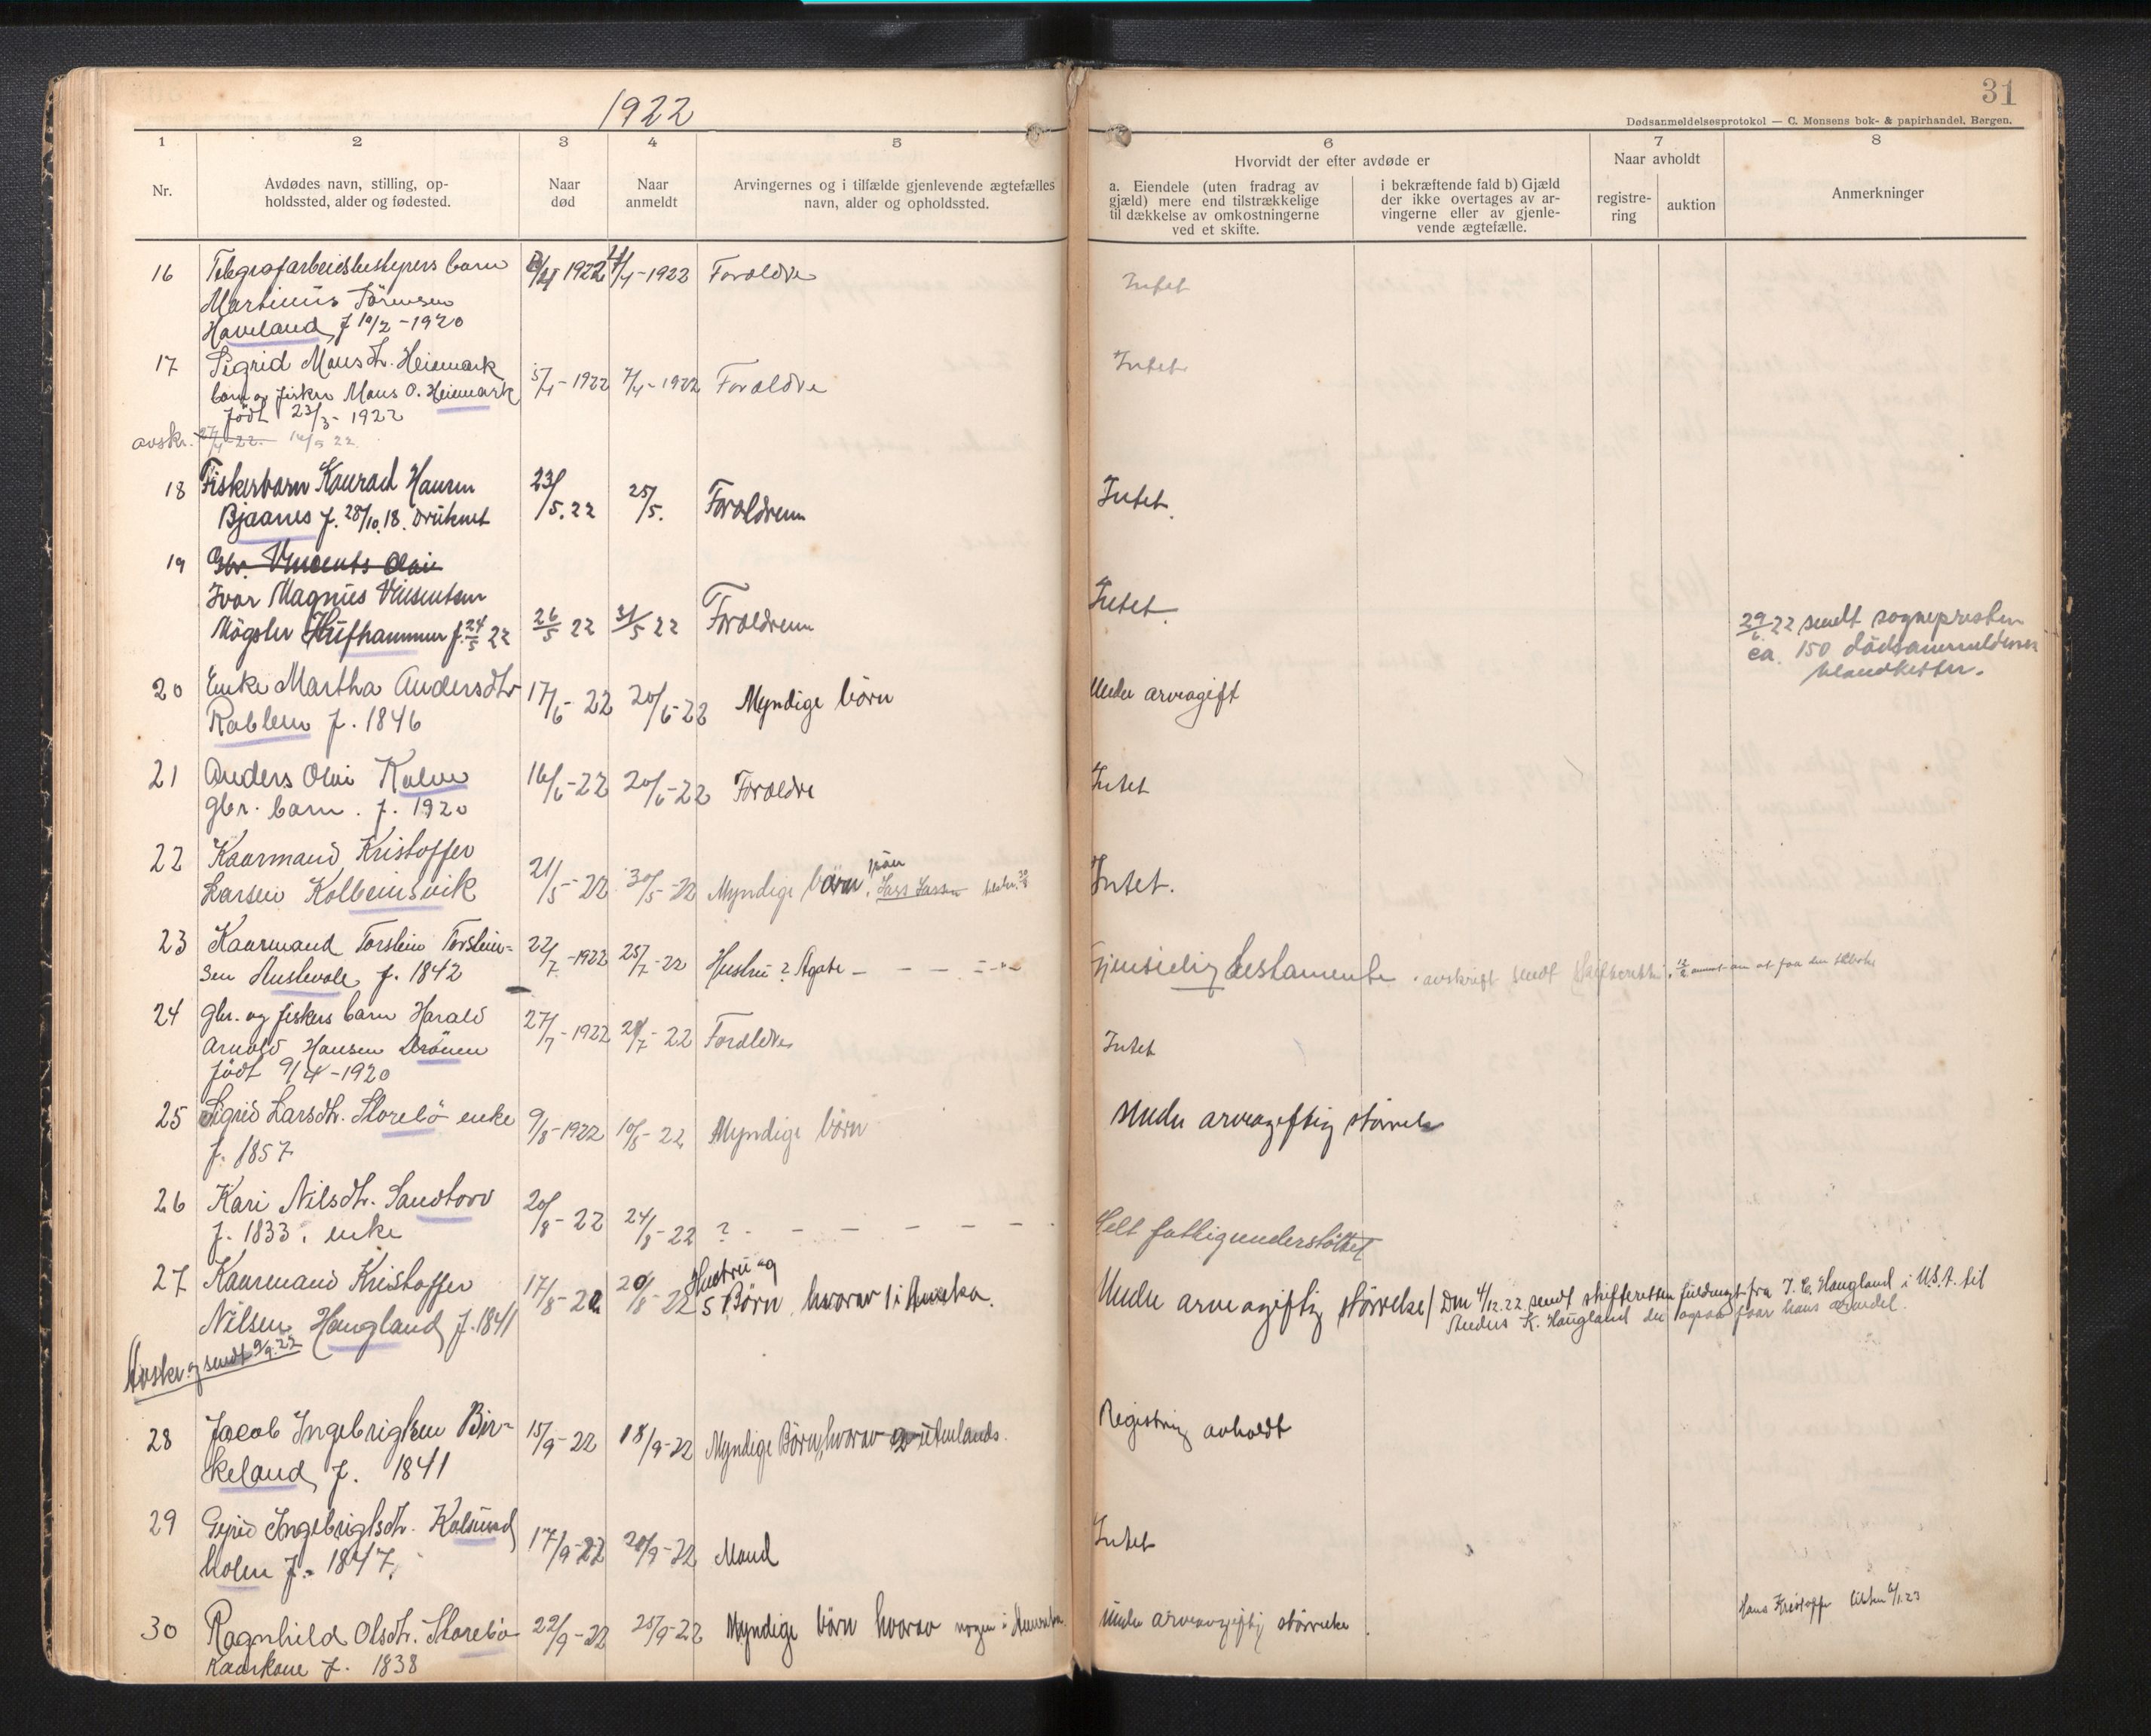 1922
31
Dødsanmeldelsesprotokol — C. Monsens bok- & papirhandel, Bergen.
1
2
3
4
5
6
7
8
Nr.
Avdødes navn, stilling, op-
holdssted, alder og fødested.
Naar
død
Naar
anmeldt
Arvingernes og i tilfælde gjenlevende ægtefælles
navn, alder og opholdssted.
Hvorvidt der efter avdøde er
a. Eiendele (uten fradrag av
gjæld) mere end tilstrækkelige
til dækkelse av omkostningerne
ved et skifte.
i bekræftende fald b) Gjæld
der ikke overtages av ar-
vingerne eller av gjenle-
vende ægtefælle.
Naar avholdt
registre-
ring
auktion
Anmerkninger
16 Telegrafarbeidsbestyrers barn 4/4-1922 Forældre Intet
Martinius Sørensen
Haveland, f 10/2-1920
17 Sigrid Mons dtr. Heiemark
barn av fisker Mons O. Heiemark 5/4-1922 7/4-1922 Forældre Intet
født 23/3-1922
avskr. 27/4-22. 14/5 22
18 Fiskerbarn Konrad Hansen 23/5.22 25/5. Forældrene Intet.
Bjaanes f. 28/10.18. druknet
19 Gbr. Vincents Olai
Ivar Magnus Vinsentsen
Møgster Hufthammer f. 24/5 22 26/5 22 31/5 22 Forældrene Intet.
29/6.22 sendt sognepresten
ca. 150 dødsanmeldelses
blanketter.
20 Enke Martha Andersdtr 17/6-22 20/6-22 Myndige børn Under arveagift
Rabben f. 1846
21 Anders Olai Kalve 16/6-22 20/6-22 Forældre Intet
gbr. barn. f. 1920
22 Kaarmand Kristoffer
Larsen Kolbeinsvik 21/5-22 30/5-22 Myndige børn, Lars Larsen Intet.
23 Kaarmand Torstein Torstein- 22/7-1922 25/7-22 Hustru ? Agate — Gjensidig testamente. avskrift sendt Skifteretten
sen Austevold f. 1842
24 gbr. og fiskers barn Harald
Arnold Hansen Drönen 27/7-1922 28/7-22 Forældre Intet
født 9/4-1920
25 Sigrid Larsdtr. Storebö enke 9/8-1922 10/8-22 Myndige børn Under arveagiftig störrelse
f. 1857
26 Kari Nilsdtr. Sandtorv 20/8-22 24/8-22 ? - - - - - Helt fattigunderstöttet
f. 1833. enke
27 Kaarmand Kristoffer 17/8-22 20/8-22 Hustru og
5 Børn, hvorav 1 i Amerika.
Nilsen Haugland f. 1841
Under arveagiftig störrelse / Den 4/12.22 sendt skifteretten fuldmagt fra J. C. Haugland i U.S.A. til
Anders K. Haugland der ogsaa faar hans arvedel.
Avskr. og sendt 9/9.22
28 Jacob Ingebrigtsen Bir- 15/9-22 18/9-22 Myndige Børn, hvorav 2 utenlands. Registrering avholdt
keland f. 1841
29 Gyrid Ingebrigtsdtr. Kalsund
holm f. 1847. 17/9-22 20/9-22 Mand Intet
30 Ragnhild Olsdtr. Storebö 22/9-22 25/9-22 Myndige børn hvorav nogen i Amerika. Under arveavgiftig störrelse.
kaarkone f. 1838
Hans Kristoffer